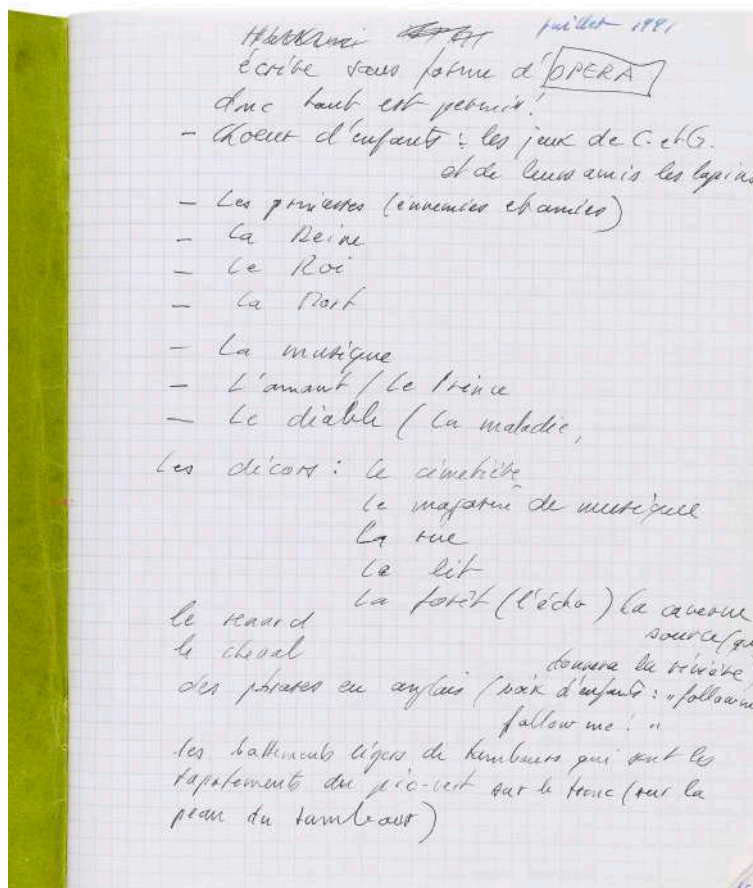 juillet 1991
écrire sous forme d'OPERA
donc tout est permis!
- Choeur d'enfants : les jeux de C. et G.
et de leurs amis les lapins
- Les princesses (ennemies et amies)
- La Reine
- Le Roi
- La Mort
- La musique
- L'amant / Le Prince
- Le diable / la maladie,
Les décors : le cimetière
le magasin de musique
la rue
le lit
la forêt (l'écho) la caverne
source (qu
le renard
le cheval
donnera la rivière
des phrases en anglais (voix d'enfants : "follow me
follow me! "
les battements légers de tambours qui sont les
tapotements du pic-vert sur le tronc (sur la
peau du tambour)